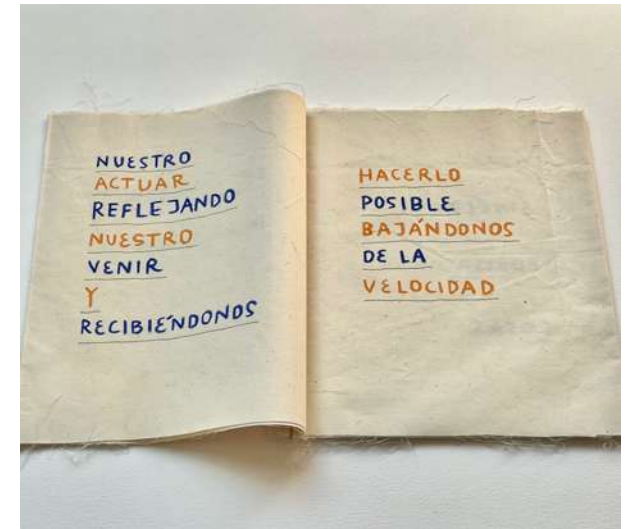 NUESTRO
ACTUAR
REFLEJANDO
NUESTRO
VENIR
Y
RECIBIÉNDONOS
HACERLO
POSIBLE
BAJÁNDONOS
DE LA
VELOCIDAD